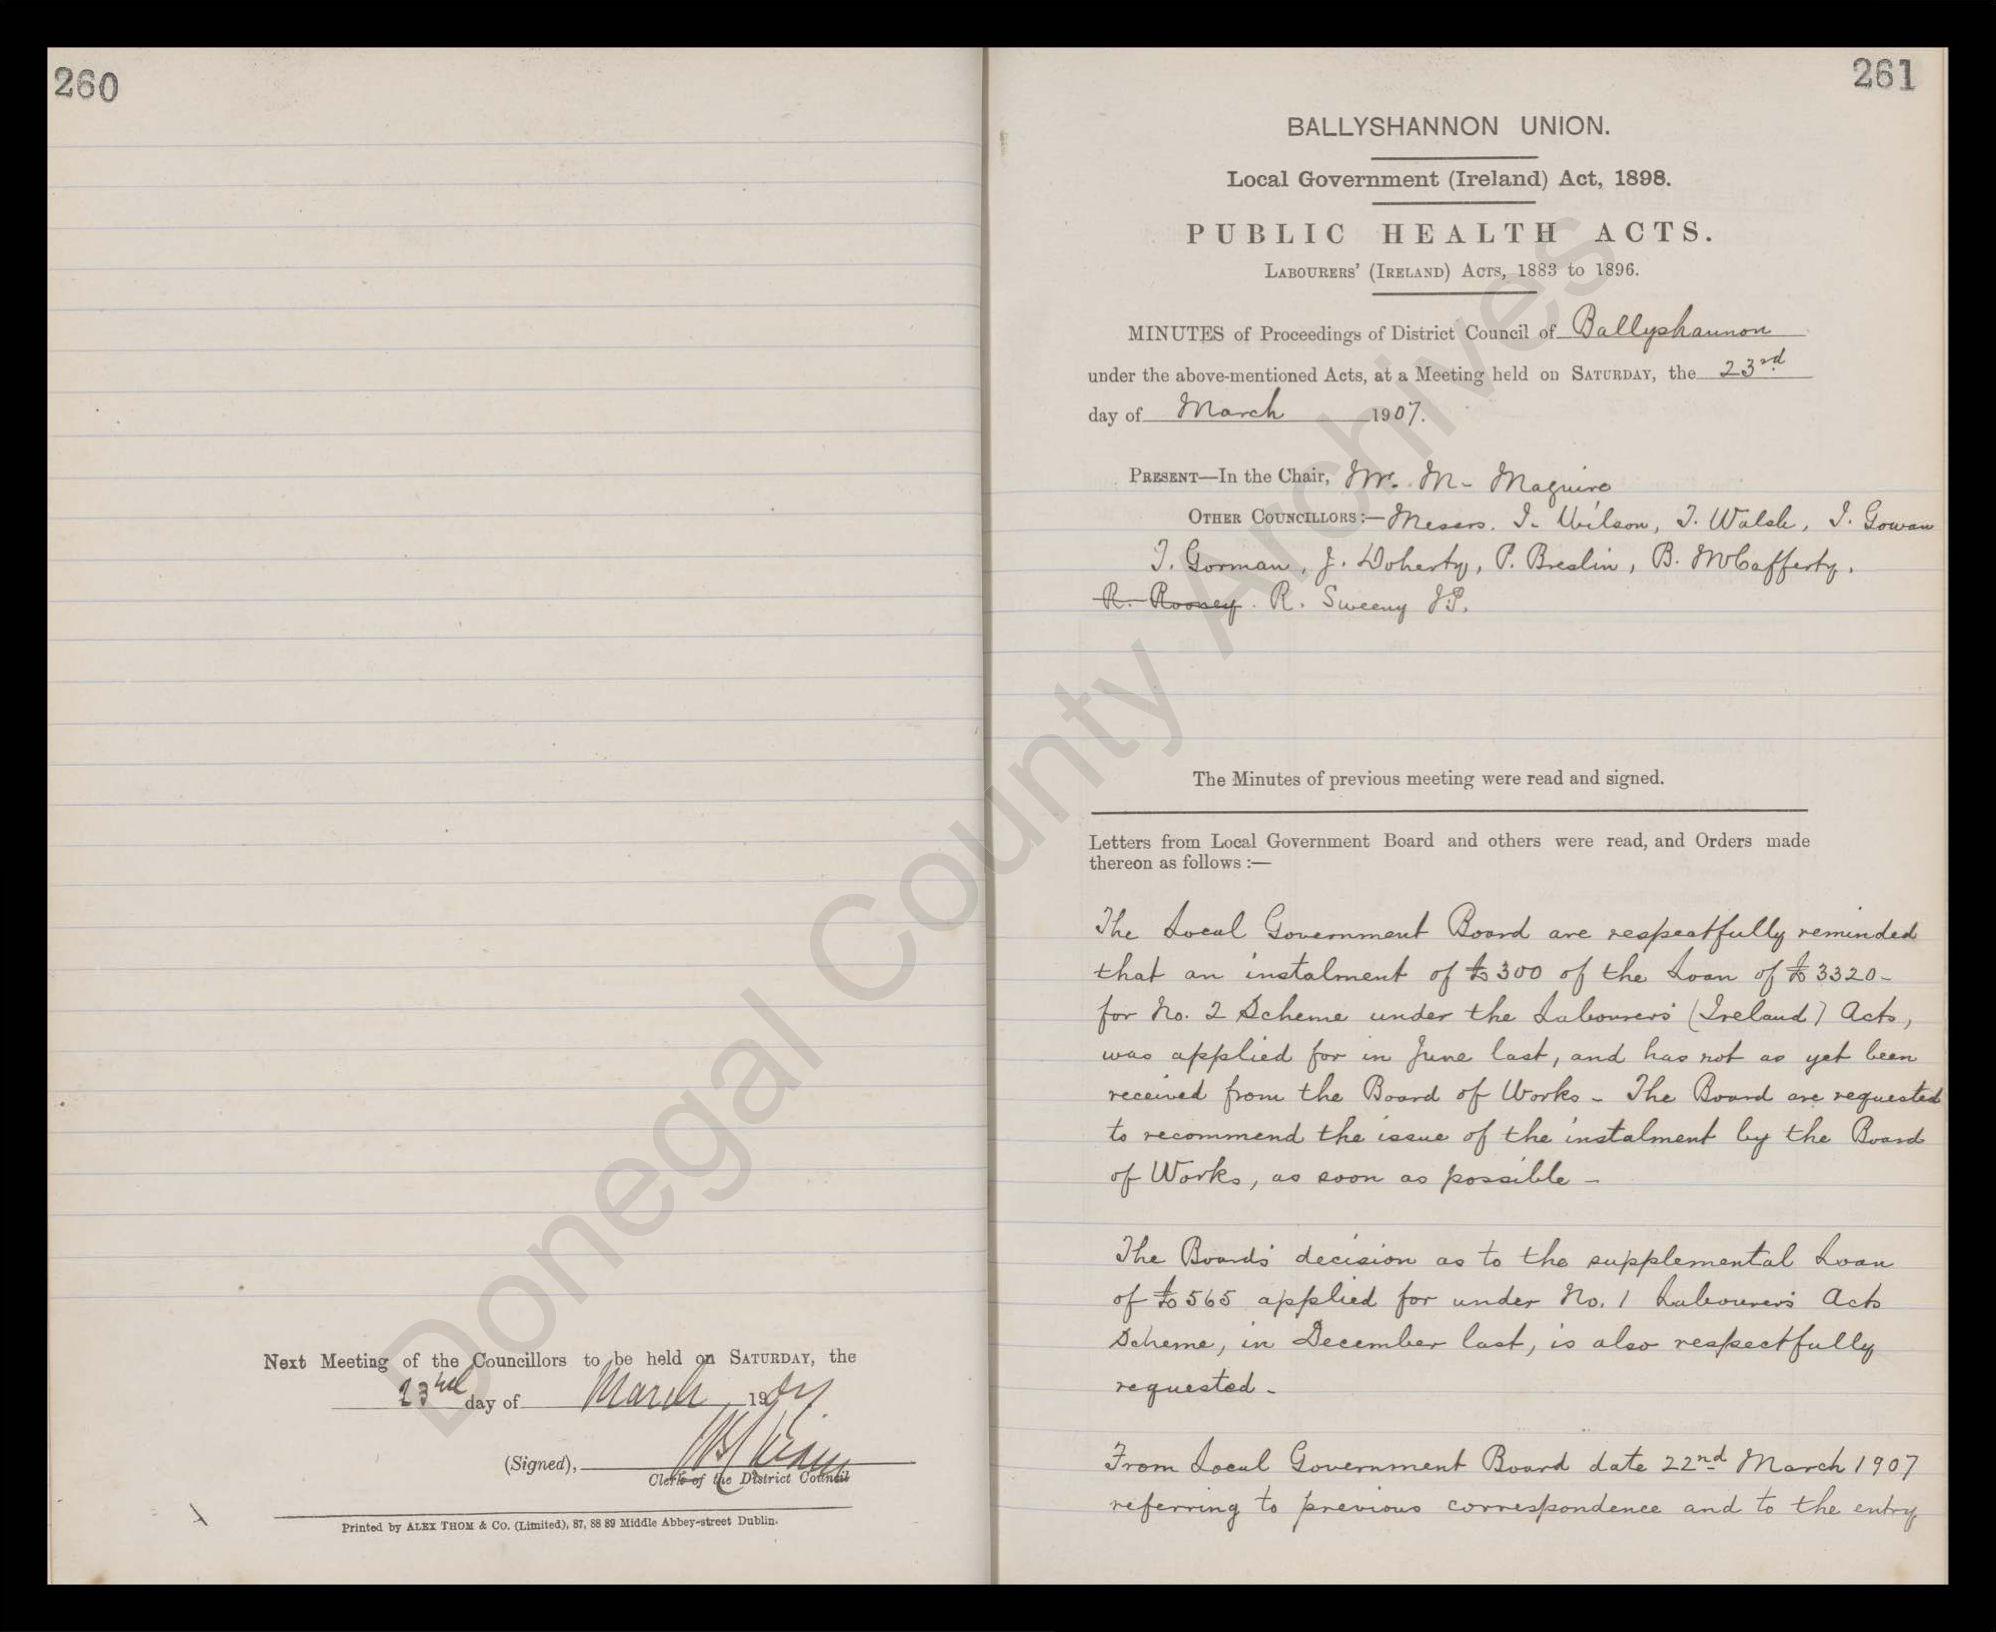 260
Next Meeting of the Councillors to be held on SATURDAY, the
23rd day of March 1907
(Signed),
Clerk of the District Council
Printed by ALEX THOM & Co. (Limited), 87, 88 89 Middle Abbey-street Dublin.
261
BALLYSHANNON UNION.
Local Government (Ireland) Act, 1898.
PUBLIC HEALTH ACTS.
LABOURERS' (IRELAND) ACTS, 1883 to 1896.
MINUTES of Proceedings of District Council of Ballyshannon
under the above-mentioned Acts, at a Meeting held on SATURDAY, the 23rd
day of March 1907.
PRESENT—In the Chair, Mr. M. Maguire
OTHER COUNCILLORS:—Messrs. I. Wilson, T. Walsh, I. Gowan
T. Gorman, J. Doherty, P. Breslin, B. McCafferty.
R. Rooney. R. Sweeny J.P.
The Minutes of previous meeting were read and signed.
Letters from Local Government Board and others were read, and Orders made
thereon as follows :—
The Local Government Board are respectfully reminded
that an instalment of £300 of the Loan of £3320-
for No. 2 Scheme under the Labourers' (Ireland) Acts,
was applied for in June last, and has not as yet been
received from the Board of Works - The Board are requested
to recommend the issue of the instalment by the Board
of Works, as soon as possible -
The Boards' decision as to the supplemental Loan
of £565 applied for under No. 1 Labourers' Acts
Scheme, in December last, is also respectfully
requested -
From Local Government Board date 22nd March 1907
referring to previous correspondence and to the entry
Donegal County Archives